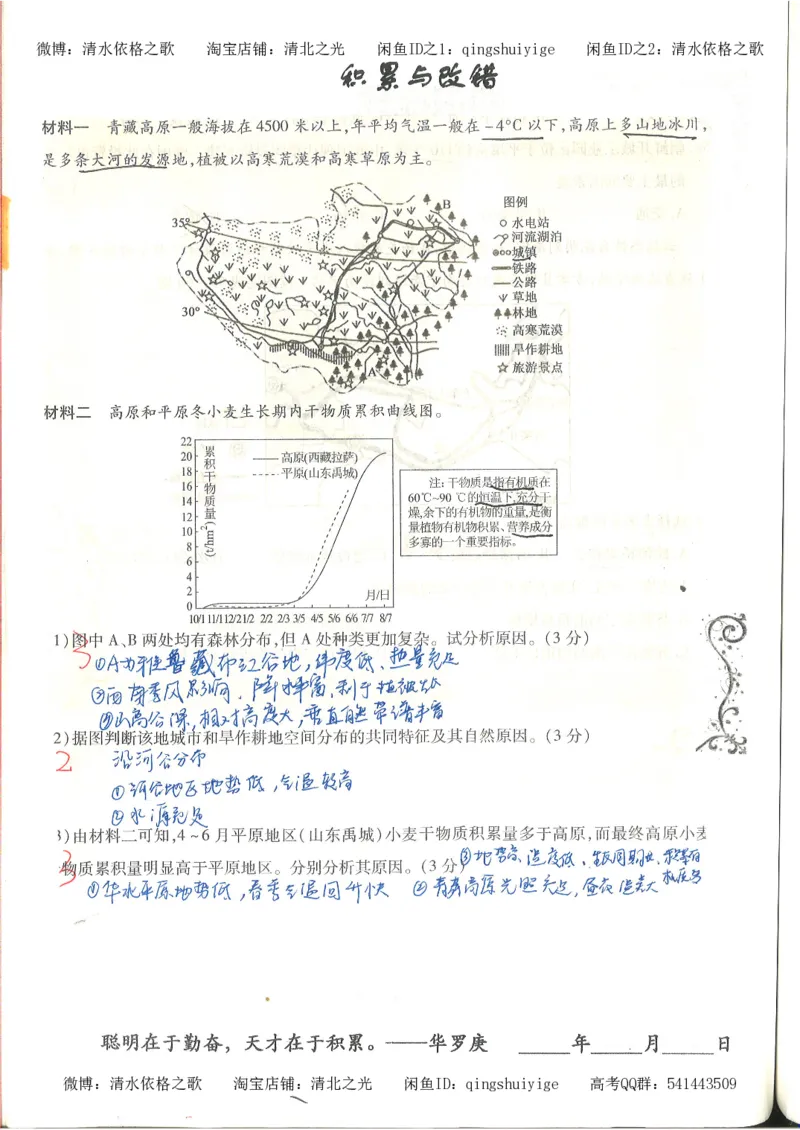 微博：清水依格之歌 淘宝店铺：清北之光 闲鱼ID之1：qingshuiyige 闲鱼ID之2：清水依格之歌
积累与改错
材料一 青藏高原一般海拔在4500米以上,年平均气温一般在-4℃以下,高原上多山地冰川,
是多条大河的发源地,植被以高寒荒漠和高寒草原为主。
B
35°
30°
A
图例
水电站
河流湖泊
城镇
铁路
公路
草地
林地
高寒荒漠
旱作耕地
旅游景点
材料二 高原和平原冬小麦生长期内干物质累积曲线图。
22
20
18
16
14
12
10
8
6
4
2
0
累积干物质量(t/hm²)
高原(西藏拉萨)
平原(山东禹城)
月/日
10/1 11/1 12/2 1/2 2/2 3/5 4/5 5/6 6/6 7/7 8/7
注:干物质是指有机质在
60℃~90 ℃的恒温下,充分干
燥,余下的有机物的重量,是衡
量植物有机物积累、营养成分
多寡的一个重要指标。
1)图中A、B两处均有森林分布,但A处种类更加复杂。试分析原因。(3分)
3
①A为雅鲁藏布江谷地,纬度低、热量充足
②西南季风影响、降水丰富,利于植被
③山高谷深,相对高度大,垂直自然带谱丰富
2)据图判断该地城市和旱作耕地空间分布的共同特征及其自然原因。(3分)
2
沿河谷分布
①河谷地区地势低,气温较高
②水源充足
3)由材料二可知,4~6月平原地区(山东禹城)小麦干物质积累量多于高原,而最终高原小麦
物质累积量明显高于平原地区。分别分析其原因。(3分)
3
③地势高、温度低、生长周期长、积累有
机质多
①华北平原地势低,春季气温回升快 ②青藏高原光照充足,昼夜温差大
聪明在于勤奋，天才在于积累。——华罗庚 年 月 日
微博：清水依格之歌 淘宝店铺：清北之光 闲鱼ID：qingshuiyige 高考QQ群：541443509